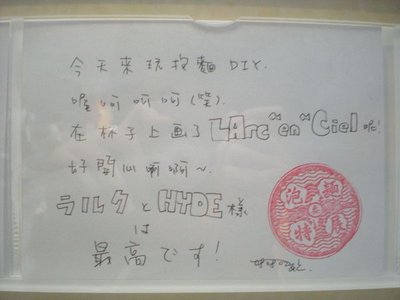 今天來玩泡麵DIY.
喔呵呵呵(笑).
在杯子上画了L'Arc~en~Ciel呢!
好開心啊啊~
ラルクとHYDE様
は
最高です!
泡麵
特展